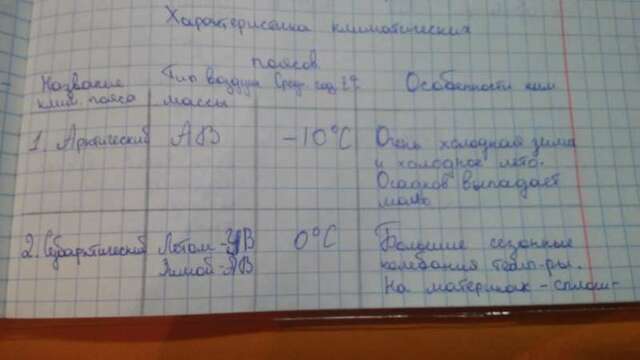 Характеристика климатических
поясов
Название
клим. пояса
Тип воздуш
массы
Сред. год. t°
Особенности клим
1. Арктический
АВ
-10°С
Очень холодная зима
и холодное лето.
Осадков выпадает
мало.
2. Субарктический
Летом - УВ
Зимой - АВ
0°С
Большие сезонные
колебания темп-ры.
На материках - сплош-